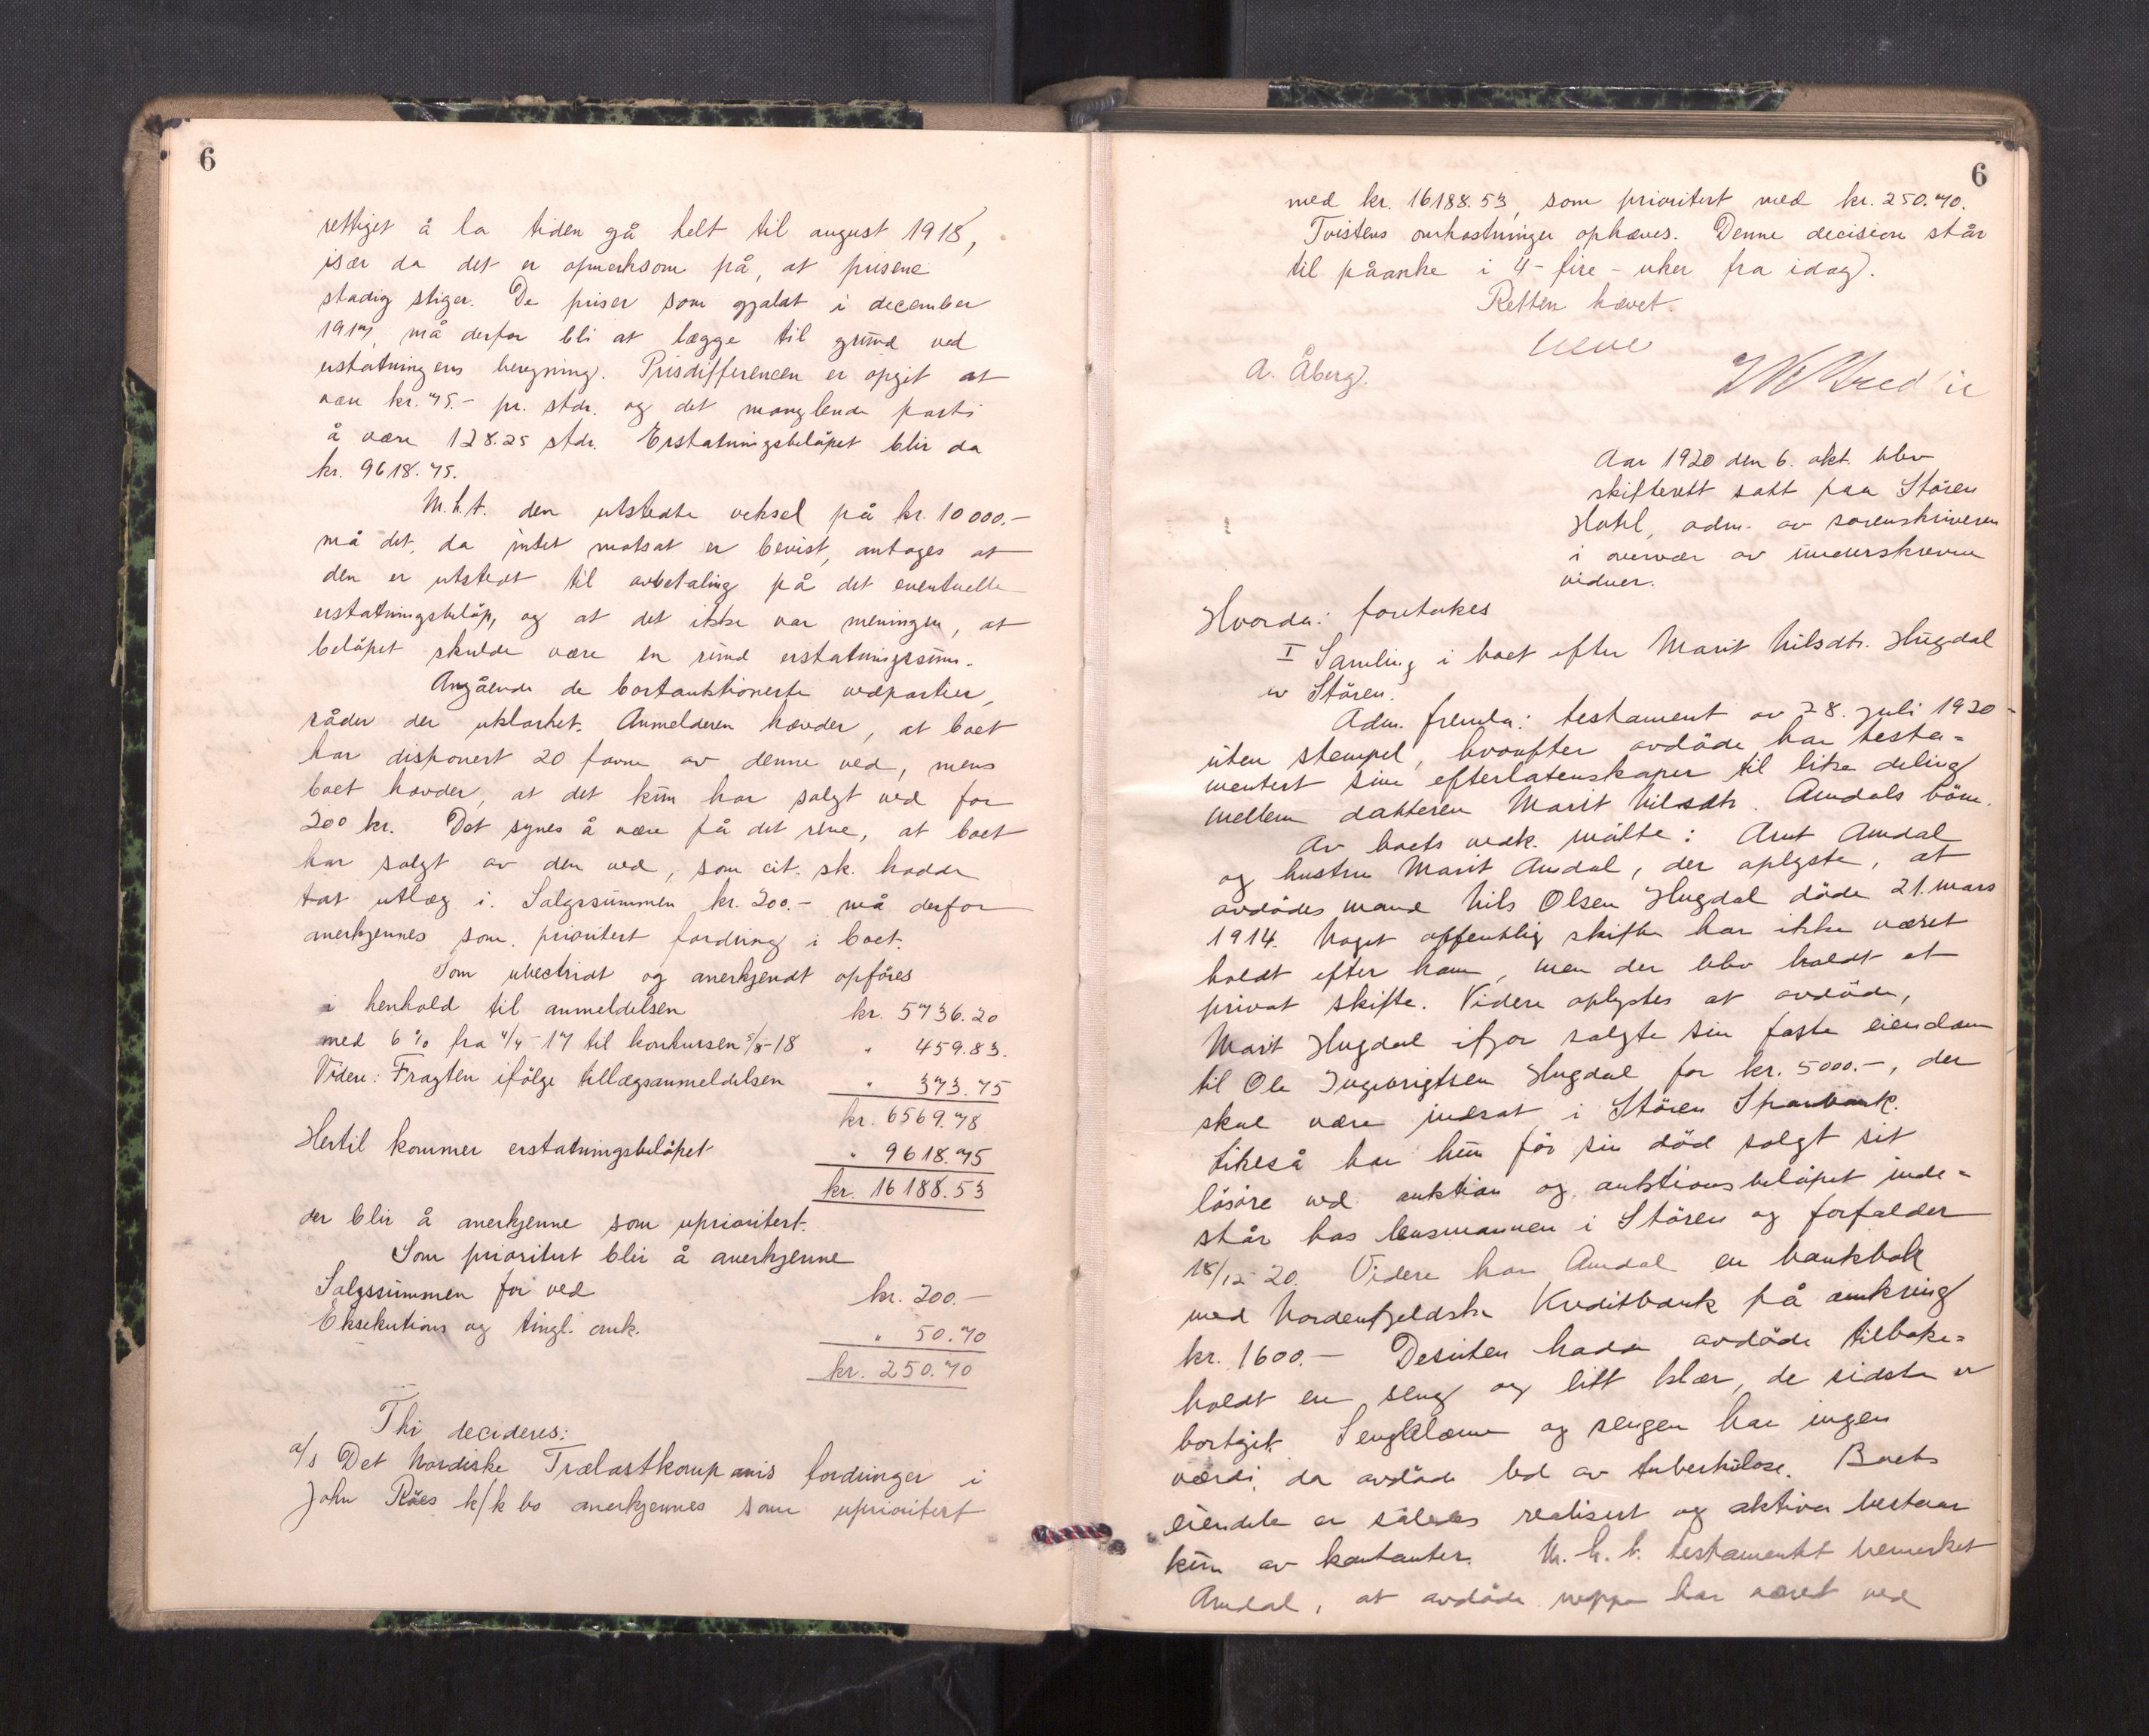 6
rettiget å la tiden gå helt til august 1918,
især da det er opmerksom på, at prisene
stadig stiger. De priser som gjaldt i december
1917, må derfor bli at lægge til grund ved
erstatningens beregning. Prisdifferencen er opgit at
være kr. 75.- pr. stdr. og det manglende parti
å være 128.25 stdr. Erstatningsbeløpet blir da
kr. 9618.75.
M.h.t. den utstedte veksel på kr. 10000.-
må det, da intet motsat er bevist, antages at
den er utstedt til avbetaling på det eventuelle
erstatningsbeløp, og at det ikke var meningen, at
beløpet skulde være en rund erstatningssum.
Angående de bortauktionerte vedpartier,
råder der uklarhet. Anmelderen hævder, at boet
har disponert 20 favne av denne ved, mens
boet hævder, at det kun har solgt ved for
200 kr. Det synes å være på det rene, at boet
har solgt av den ved, som cit. sk. hadde
tat utlæg i. Salgssummen kr. 200.- må derfor
anerkjennes som prioritert fordring i boet.
Som ubestridt og anerkjendt opføres
i henhold til anmeldelsen kr. 5736.20
med 6 % fra 4/4-17 til konkursen 5/8-18 " 459.83.
Videre: Fragten ifølge tillægsanmeldelsen " 373.75
kr. 6569.78
Hertil kommer erstatningsbeløpet " 9618.75
kr. 16188.53
der blir å anerkjenne som uprioritert.
Som prioritert blir å anerkjenne
Salgssummen for ved kr. 200.-
Eksekutions og tingl. omk. " 50.70
kr. 250.70
Thi decideres:
a/s Det Nordiske Trælastkompanis fordringer i
John Råes k/k bo anerkjennes som uprioritert
6
med kr. 16188.53, som prioritert med kr. 250.70.
Tvistens omkostninger ophæves. Denne decision står
til påanke i 4 - fire - uker fra idag.
Retten hævet.
A. Åberg.
Aar 1920 den 6. okt. blev
skifterett satt paa Støren
Hotel, adm. av sorenskriveren
i overvær av underskrevne
vidner.
Hvorda: foretokes
I Samling i boet efter Marit Nilsdtr. Hugdal
av Støren.
Adm. fremla: testament av 28. juli 1920 -
uten stempel, hvorefter avdøde har testa=
mentert sine efterlatenskaper til like deling
mellem datteren Marit Nilsdtr. Amdals børn.
Av boets vedk. møtte: Arnt Amdal
og hustru Marit Amdal, der oplyste, at
avdødes mand Nils Olsen Hugdal døde 21. mars
1914. Noget offentlig skifte har ikke været
holdt efter ham, men der blev holdt et
privat skifte. Videre oplystes at avdøde,
Marit Hugdal ifjor solgte sin faste eiendom
til Ole Ingebrigtsen Hugdal for kr. 5000.-, der
skal være indsat i Støren Sparebank.
Likeså har hun før sin død solgt sit
løsøre ved auktion og auktionsbeløpet inde=
står hos lensmannen i Støren og forfalder
18/12-20. Videre har Amdal en bankbok
med Nordenfjeldske Kreditbank på omkring
kr. 1600.- Desuten hadde avdøde tilbake=
holdt en seng og litt klær, de sidste er
bortgit. Sengklærne og sengen har ingen
værdi, da avdøde led av tuberkulose. Boets
eiendele er således realisert og aktiva bestaar
kun av kontanter. M.h.t. testamentet bemerket
Amdal, at avdøde neppe har været ved